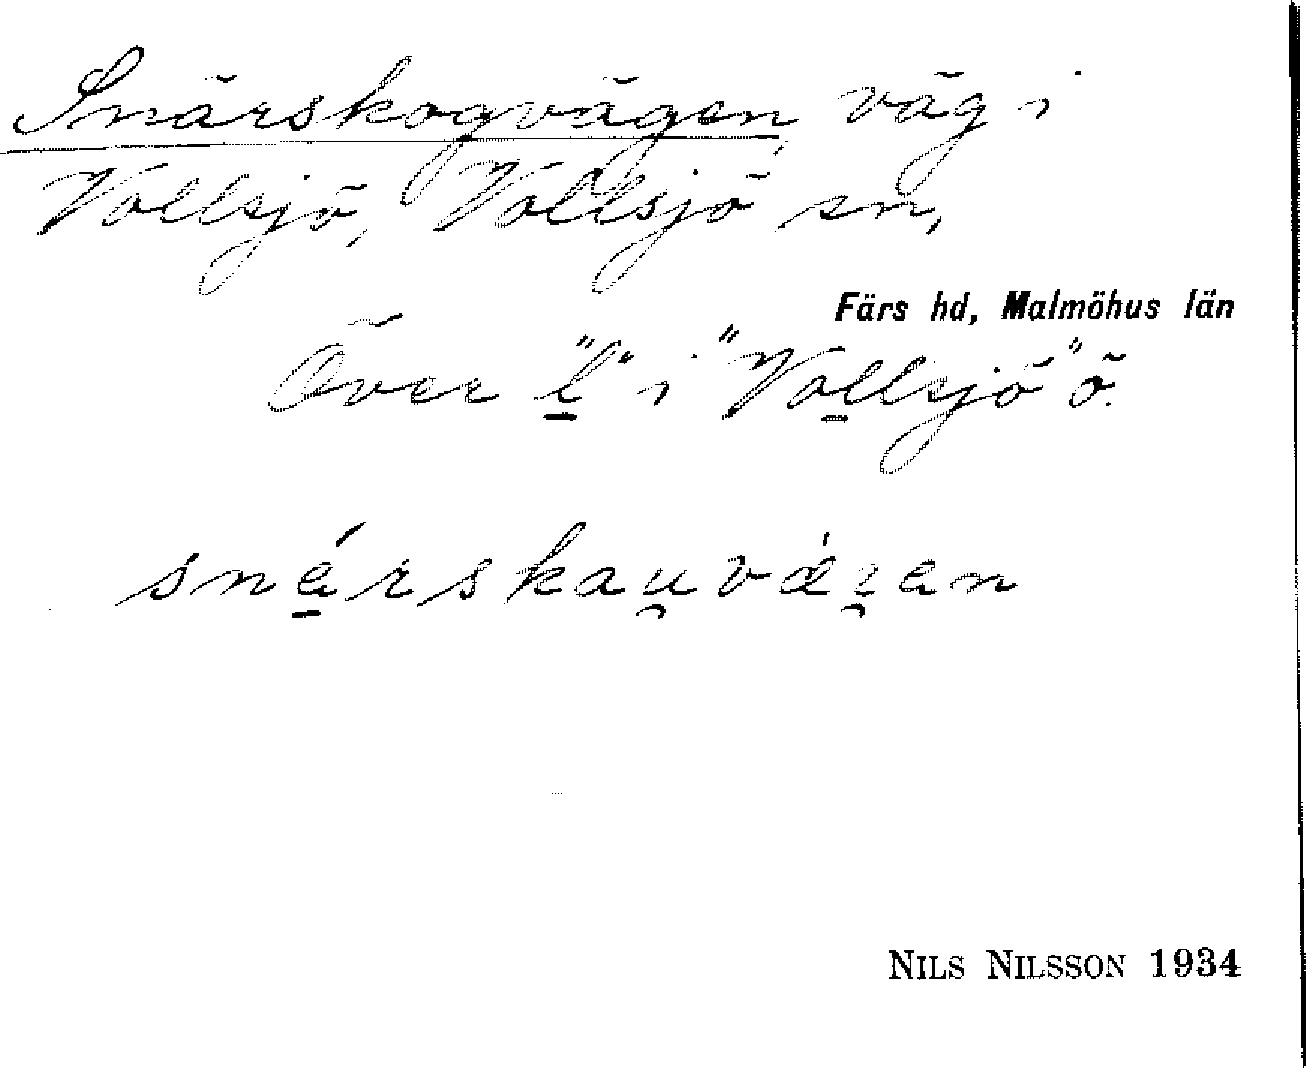 Snärskogvägen, väg i
Vollsjö, Vollsjö sn,
Färs hd, Malmöhus län
Över "l" i "Vollsjö" ö.
snǽrskau̯vǽɪ̯en
NILS NILSSON 1934